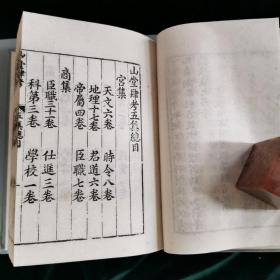 山堂肆考五集總目
宮集
天文六卷　時令八卷
地理十七卷　君道六卷
帝屬四卷　臣職七卷
商集
臣職三十一卷　仕進三卷
科第三卷　學校一卷